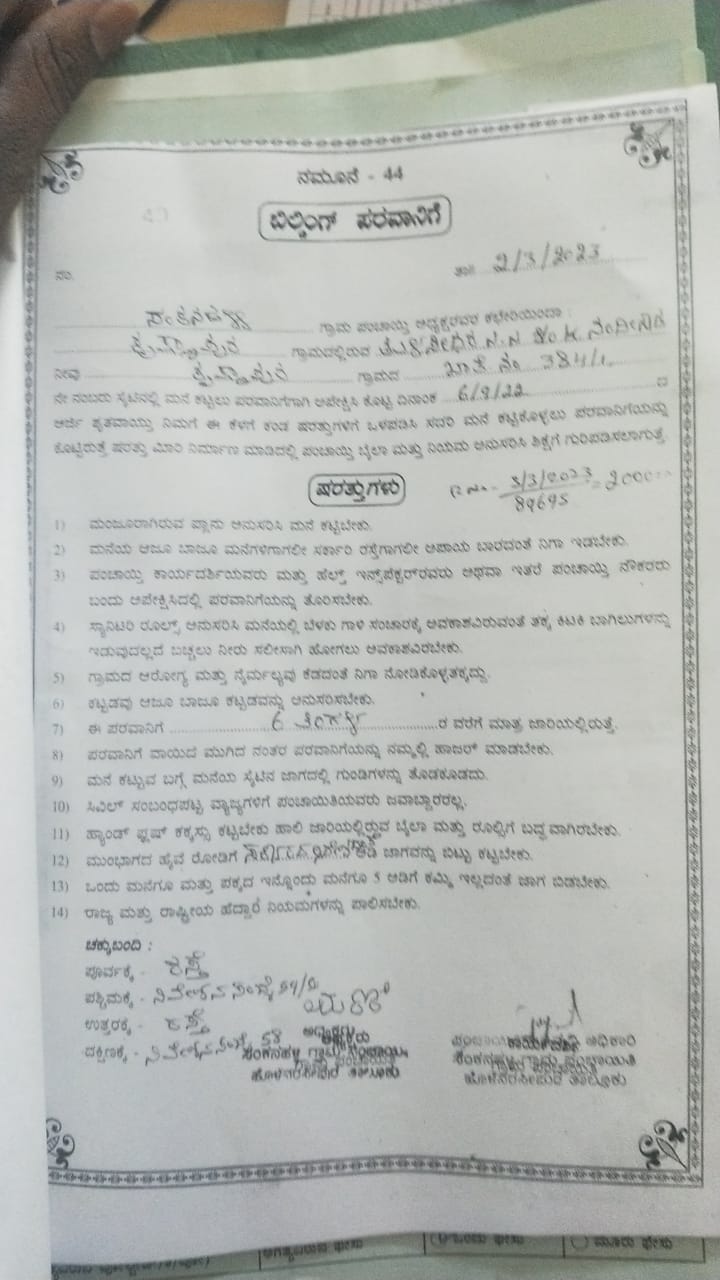 ನಮೂನೆ - 44
ಬಿಲ್ಡಿಂಗ್ ಪರವಾನಿಗೆ
ನಂ. ತಾ॥ 2/3/2023
ಗ್ರಾಮ ಪಂಚಾಯ್ತಿ ಅಧ್ಯಕ್ಷರವರ ಕಛೇರಿಯಿಂದಾ :
ಗ್ರಾಮದಲ್ಲಿರುವ
ನೀವು ಗ್ರಾಮದ ಖಾತೆ ನಂ 384/1 ದ
ನೇ ನಂಬರು ಸೈಟಿನಲ್ಲಿ ಮನೆ ಕಟ್ಟಲು ಪರವಾನಿಗೆಗಾಗಿ ಅಪೇಕ್ಷಿಸಿ ಕೊಟ್ಟ ದಿನಾಂಕ 6/9/22
ಅರ್ಜಿ ಪ್ರಕವಾಯ್ತು ನಿಮಗೆ ಈ ಕೆಳಗೆ ಕಂಡ ಷರತ್ತುಗಳಿಗೆ ಒಳಪಡಿಸಿ ಸದರಿ ಮನೆ ಕಟ್ಟಕೊಳ್ಳಲು ಪರವಾನಿಗೆಯನ್ನು
ಕೊಟ್ಟಿರುತ್ತೆ ಷರತ್ತು ಮೀರಿ ನಿರ್ಮಾಣ ಮಾಡಿದಲ್ಲಿ ಪಂಚಾಯ್ತಿ ಬೈಲಾ ಮತ್ತು ನಿಯಮ ಅನುಸರಿಸಿ ಶಿಕ್ಷೆಗೆ ಗುರಿಪಡಿಸಲಾಗುತ್ತೆ.
ಷರತ್ತುಗಳು 3/3/2023
89695
1) ಮಂಜೂರಾಗಿರುವ ಪ್ಲಾನು ಅನುಸರಿಸಿ ಮನೆ ಕಟ್ಟಬೇಕು.
2) ಮನೆಯ ಆಜೂ ಬಾಜೂ ಮನೆಗಳಿಗಾಗಲೀ ಸರ್ಕಾರಿ ರಸ್ತೆಗಾಗಲೀ ಅಪಾಯ ಬಾರದಂತೆ ನಿಗಾ ಇಡಬೇಕು.
3) ಪಂಚಾಯ್ತಿ ಕಾರ್ಯದರ್ಶಿಯವರು ಮತ್ತು ಹೆಲ್ತ್ ಇನ್ಸ್‌ಪೆಕ್ಟರ್‌ರವರು ಅಥವಾ ಇತರೆ ಪಂಚಾಯ್ತಿ ನೌಕರರು
ಬಂದು ಅಪೇಕ್ಷಿಸಿದಲ್ಲಿ ಪರವಾನಿಗೆಯನ್ನು ತೋರಿಸಬೇಕು.
4) ಸ್ಯಾನಿಟರಿ ರೂಲ್ಸ್ ಅನುಸರಿಸಿ ಮನೆಯಲ್ಲಿ ಬೆಳಕು ಗಾಳಿ ಸಂಚಾರಕ್ಕೆ ಅವಕಾಶವಿರುವಂತೆ ತಕ್ಕ ಕಿಟಕಿ ಬಾಗಿಲುಗಳನ್ನು
ಇಡುವುದಲ್ಲದೆ ಬಚ್ಚಲು ನೀರು ಸಲೀಸಾಗಿ ಹೋಗಲು ಅವಕಾಶವಿರಬೇಕು.
5) ಗ್ರಾಮದ ಆರೋಗ್ಯ ಮತ್ತು ನೈರ್ಮಲ್ಯವು ಕೆಡದಂತೆ ನಿಗಾ ನೋಡಿಕೊಳ್ಳತಕ್ಕದ್ದು.
6) ಕಟ್ಟಡವು ಆಜೂ ಬಾಜೂ ಕಟ್ಟಡವನ್ನು ಅನುಸರಿಸಬೇಕು.
7) ಈ ಪರವಾನಿಗೆ 6 ತಿಂಗಳ ರ ವರೆಗೆ ಮಾತ್ರ ಜಾರಿಯಲ್ಲಿರುತ್ತೆ.
8) ಪರವಾನಿಗೆ ವಾಯಿದೆ ಮುಗಿದ ನಂತರ ಪರವಾನಿಗೆಯನ್ನು ನಮ್ಮಲ್ಲಿ ಹಾಜರ್ ಮಾಡಬೇಕು.
9) ಮನೆ ಕಟ್ಟುವ ಬಗ್ಗೆ ಮನೆಯ ಸೈಟಿನ ಜಾಗದಲ್ಲಿ ಗುಂಡಿಗಳನ್ನು ತೊಡಕೂಡದು.
10) ಸಿವಿಲ್ ಸಂಬಂಧಪಟ್ಟ ವ್ಯಾಜ್ಯಗಳಿಗೆ ಪಂಚಾಯಿತಿಯವರು ಜವಾಬ್ದಾರರಲ್ಲ.
11) ಹ್ಯಾಂಡ್ ಫ್ಲಷ್ ಕಕ್ಕಸ್ಸು ಕಟ್ಟಬೇಕು ಹಾಲಿ ಜಾರಿಯಲ್ಲಿರುವ ಬೈಲಾ ಮತ್ತು ರೂಲ್ಸಿಗೆ ಬದ್ಧವಾಗಿರಬೇಕು.
12) ಮುಂಭಾಗದ ಹೈವೆ ರೋಡಿಗೆ ಅಡಿ ಜಾಗವನ್ನು ಬಿಟ್ಟು ಕಟ್ಟಬೇಕು.
13) ಒಂದು ಮನೆಗೂ ಮತ್ತು ಪಕ್ಕದ ಇನ್ನೊಂದು ಮನೆಗೂ 5 ಅಡಿಗೆ ಕಮ್ಮಿ ಇಲ್ಲದಂತೆ ಜಾಗ ಬಿಡಬೇಕು.
14) ರಾಜ್ಯ ಮತ್ತು ರಾಷ್ಟ್ರೀಯ ಹೆದ್ದಾರಿ ನಿಯಮಗಳನ್ನು ಪಾಲಿಸಬೇಕು.
ಚಕ್ಕುಬಂದಿ :
ಪೂರ್ವಕ್ಕೆ - ರಸ್ತೆ
ಪಶ್ಚಿಮಕ್ಕೆ - ನಿವೇಶನ ಸಂಖ್ಯೆ
ಉತ್ತರಕ್ಕೆ - ರಸ್ತೆ
ದಕ್ಷಿಣಕ್ಕೆ - ನಿವೇಶನ ಸಂಖ್ಯೆ 58
ಅಧ್ಯಕ್ಷರು
ಹೊಳೆನರಸೀಪುರ ತಾಲ್ಲೂಕು
ಹೊಳೆನರಸೀಪುರ ತಾಲ್ಲೂಕು